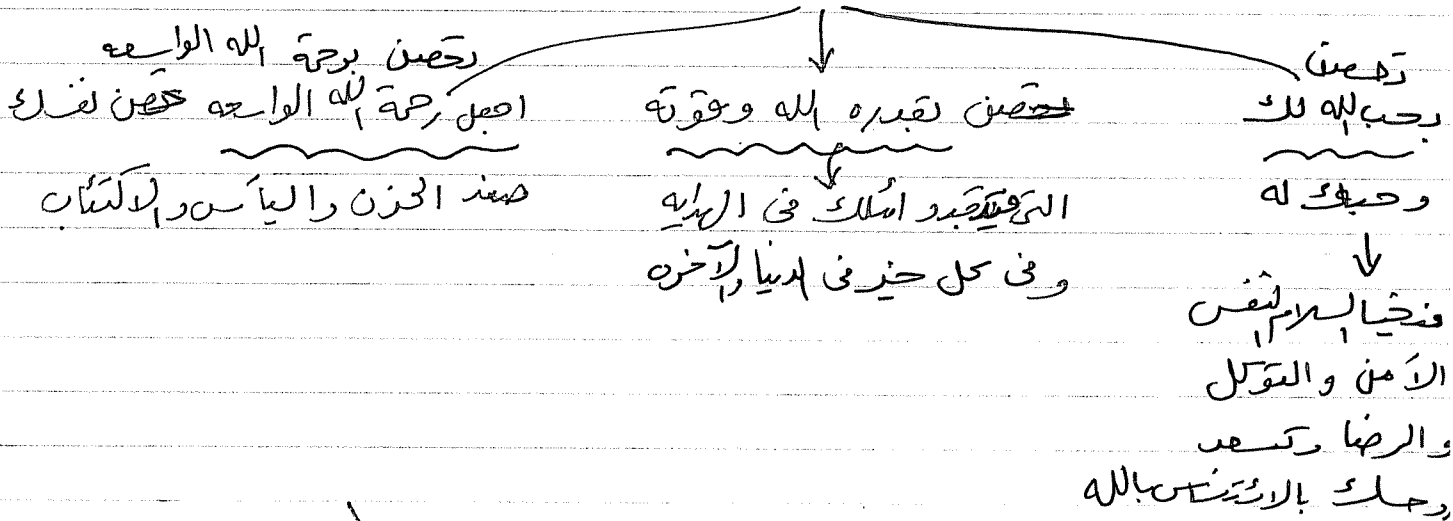 تحصن
بحب الله لك
وحبك له
فتحيا السلام النفسي
الأمن والتوكل
والرضا وتسعد
روحك بالائتناس بالله
تحصن بقدره الله وقوته
التي تجدد أملك في الهدايه
وفي كل خير في الدنيا والآخره
تحصن برحمة الله الواسعه
اجعل رحمة الله الواسعه تحصن نفسك
ضد الحزن واليأس والاكتئاب